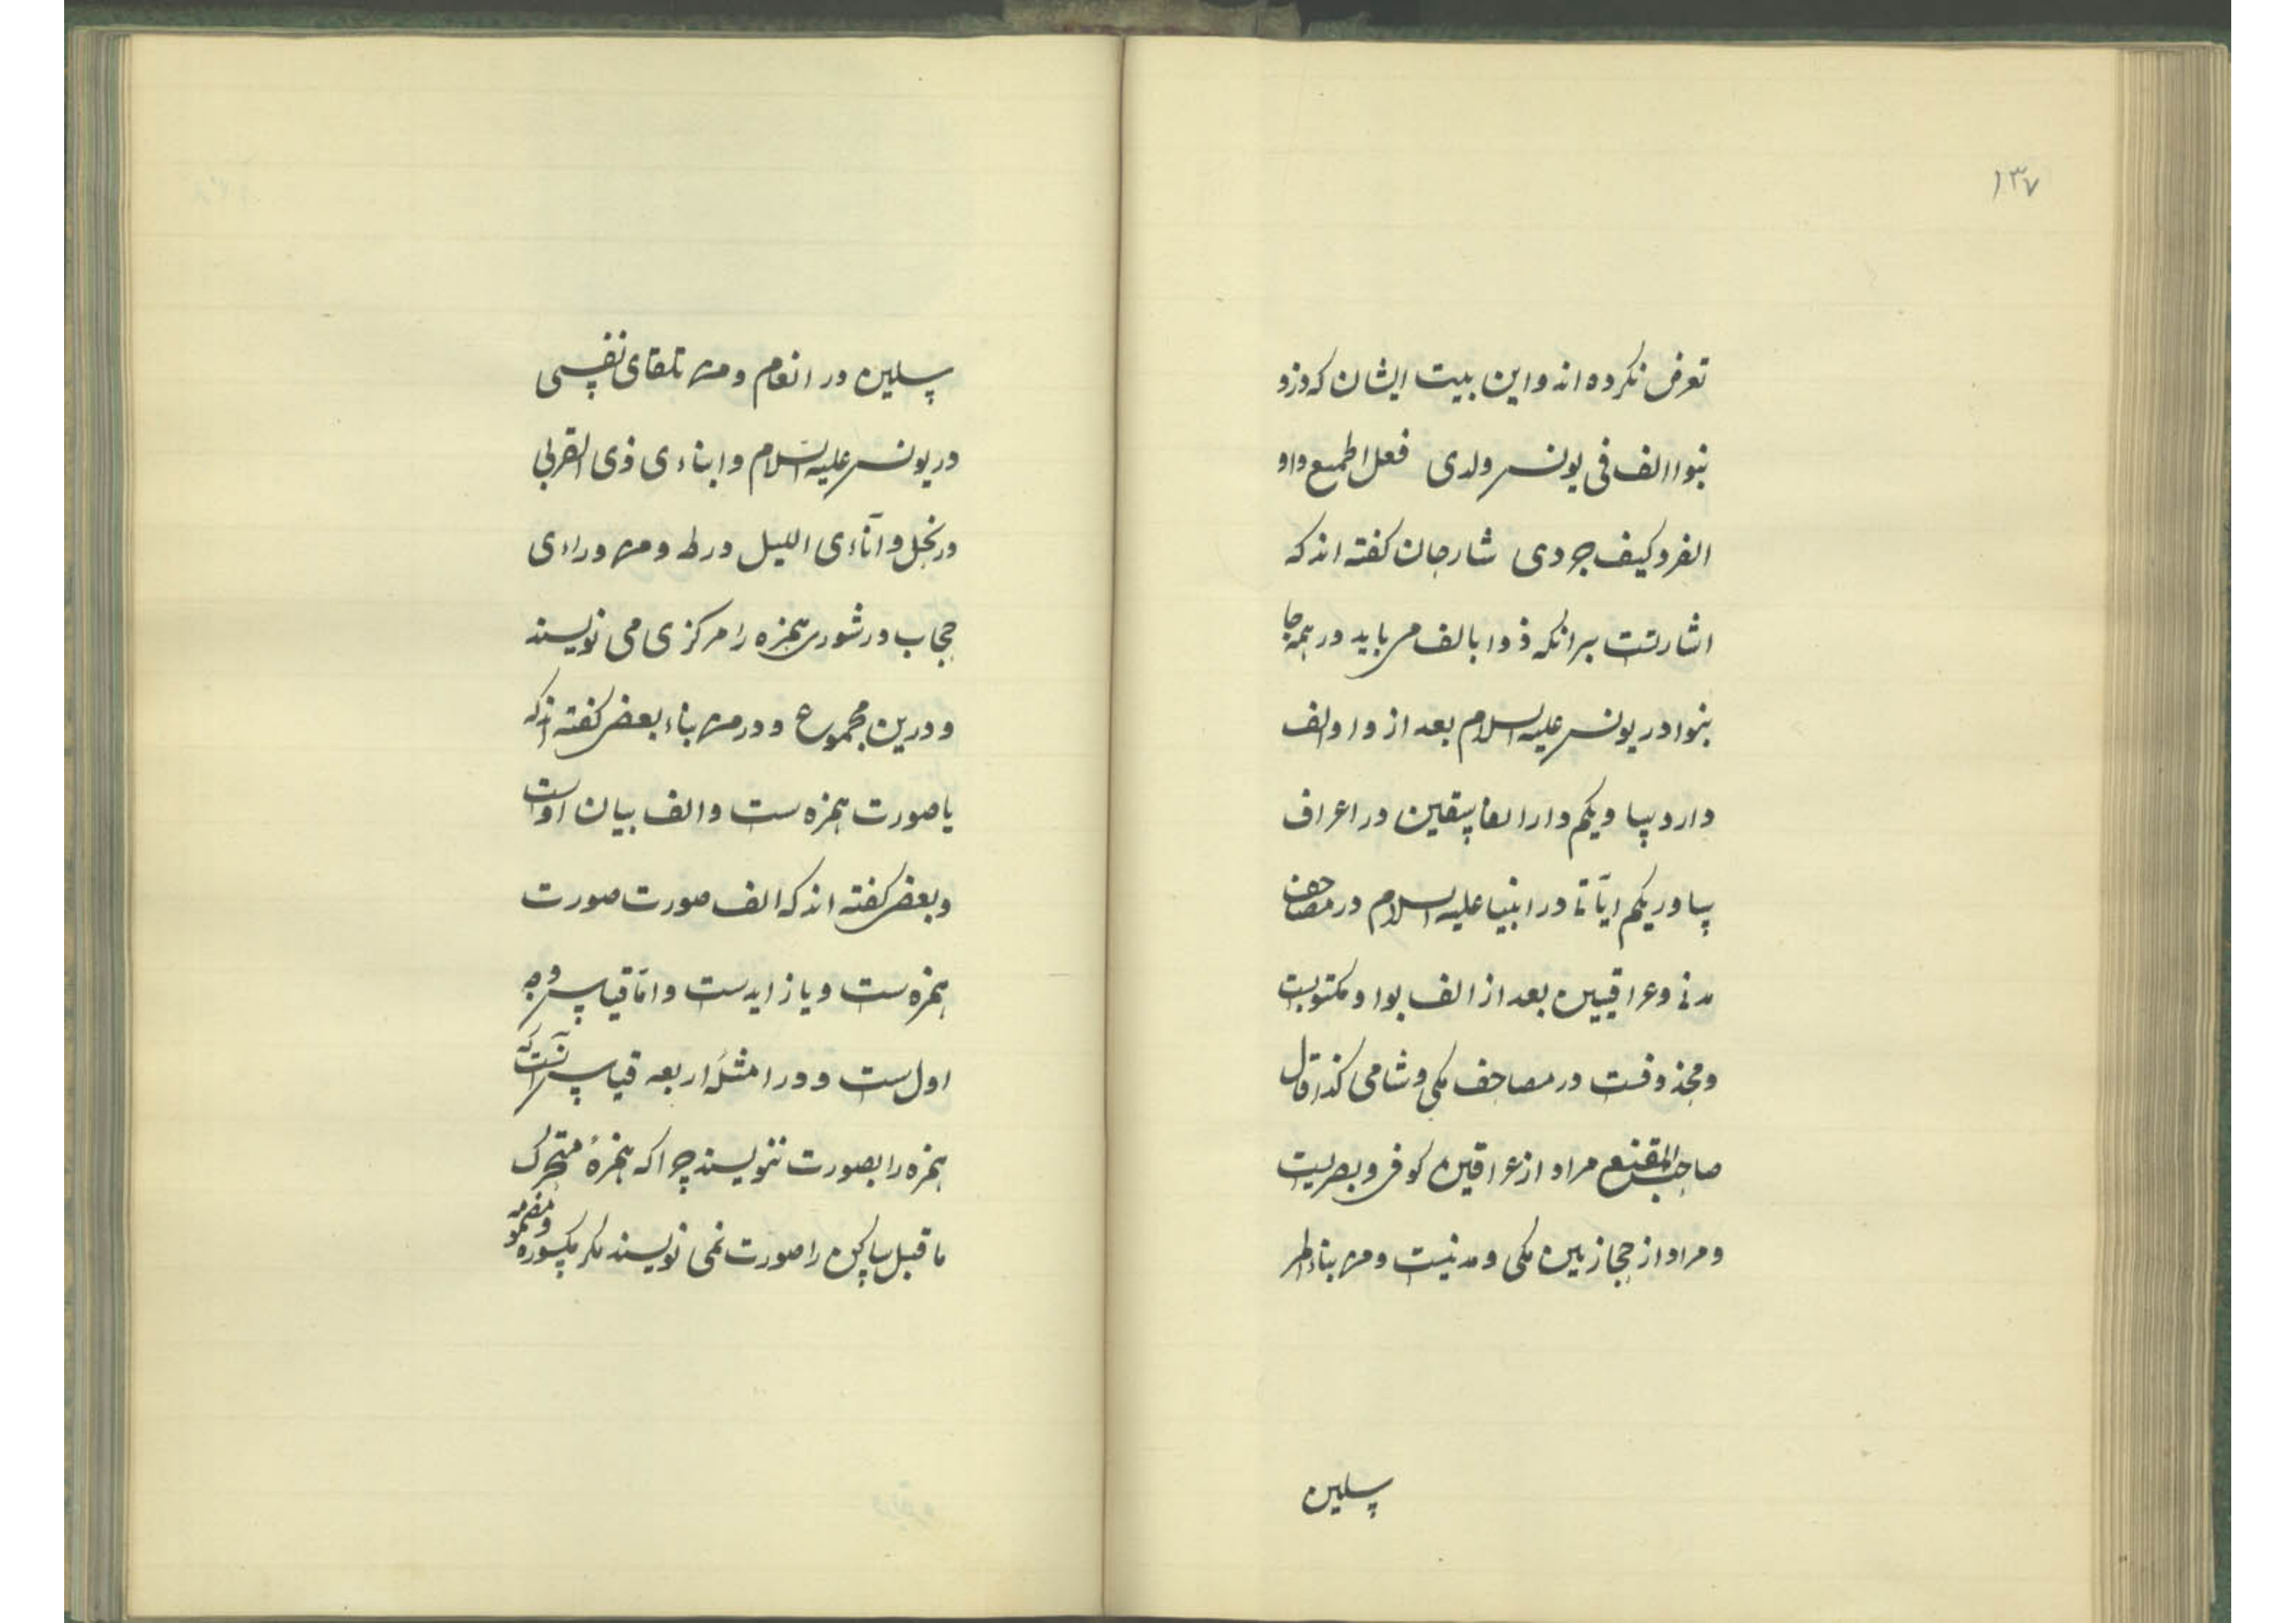 ۱۳۷
تعرض نکرده اند و این بیت ایشان که وزو
بنوا الف فی یونس ولدی فعل اطمیع واو
الفرد کیف جردی شارحان گفته اند که
اشارتست برانکه ذوا بالف می باید در همه جا
بنوا در یونس علیه السلام بعد از واو الف
دارد ساوریکم دار الفاسقین در اعراف
ساوریکم ایاتی در انبیا علیه السلام در مصاحف
مدنی و عراقیین بعد از الف بواو مکتوبست
ومحذوفست در مصاحف مکی و شامی کذا قال
صاحب المقنع مراد از عراقین کوفی و بصریست
ومراد از حجازیین مکی و مدنیست ومن بناء المر
سلین
سلین در انعام ومن تلقای نفسی
در یونس علیه السلام وایتاءی ذی القربی
در نحل و آناءی اللیل در طه ومن وراءی
حجاب در شوری همزه را مرکزی می نویسند
و درین مجموع و در من بناء بعضی گفته اند که
یا صورت همزه ست و الف بیان اوست
و بعضی گفته اند که الف صورت صورت
همزه ست و یا زایدست و اما قیاس وجه
اول ست و در امثلهٔ اربعه قیاس آنست که
همزه را بصورت ننویسند چرا که همزهٔ متحرک
ما قبل ساکن را صورت نمی نویسند مکر مکسوره ومضمومه